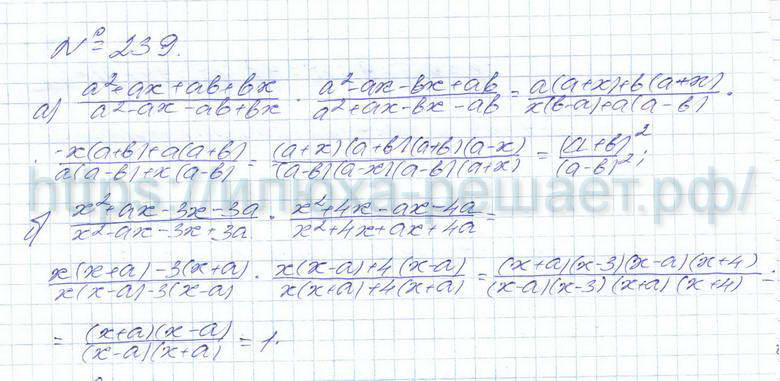 № 239.
а) (a²+ax+ab+bx)/(a²-ax-ab+bx) · (a²-ax-bx+ab)/(a²+ax-bx-ab) = (a(a+x)+b(a+x))/(x(b-a)+a(a-b)) ·
· (-x(a+b)+a(a+b))/(a(a-b)+x(a-b)) = ((a+x)(a+b)(a+b)(a-x))/((a-b)(a-x)(a-b)(a+x)) = (a+b)²/(a-b)²;
https://илюха-решает.рф/
б) (x²+ax-3x-3a)/(x²-ax-3x+3a) · (x²+4x-ax-4a)/(x²+4x+ax+4a) =
(x(x+a)-3(x+a))/(x(x-a)-3(x-a)) · (x(x-a)+4(x-a))/(x(x+a)+4(x+a)) = ((x+a)(x-3)(x-a)(x+4))/((x-a)(x-3)(x+a)(x+4)) =
= ((x+a)(x-a))/((x-a)(x+a)) = 1.